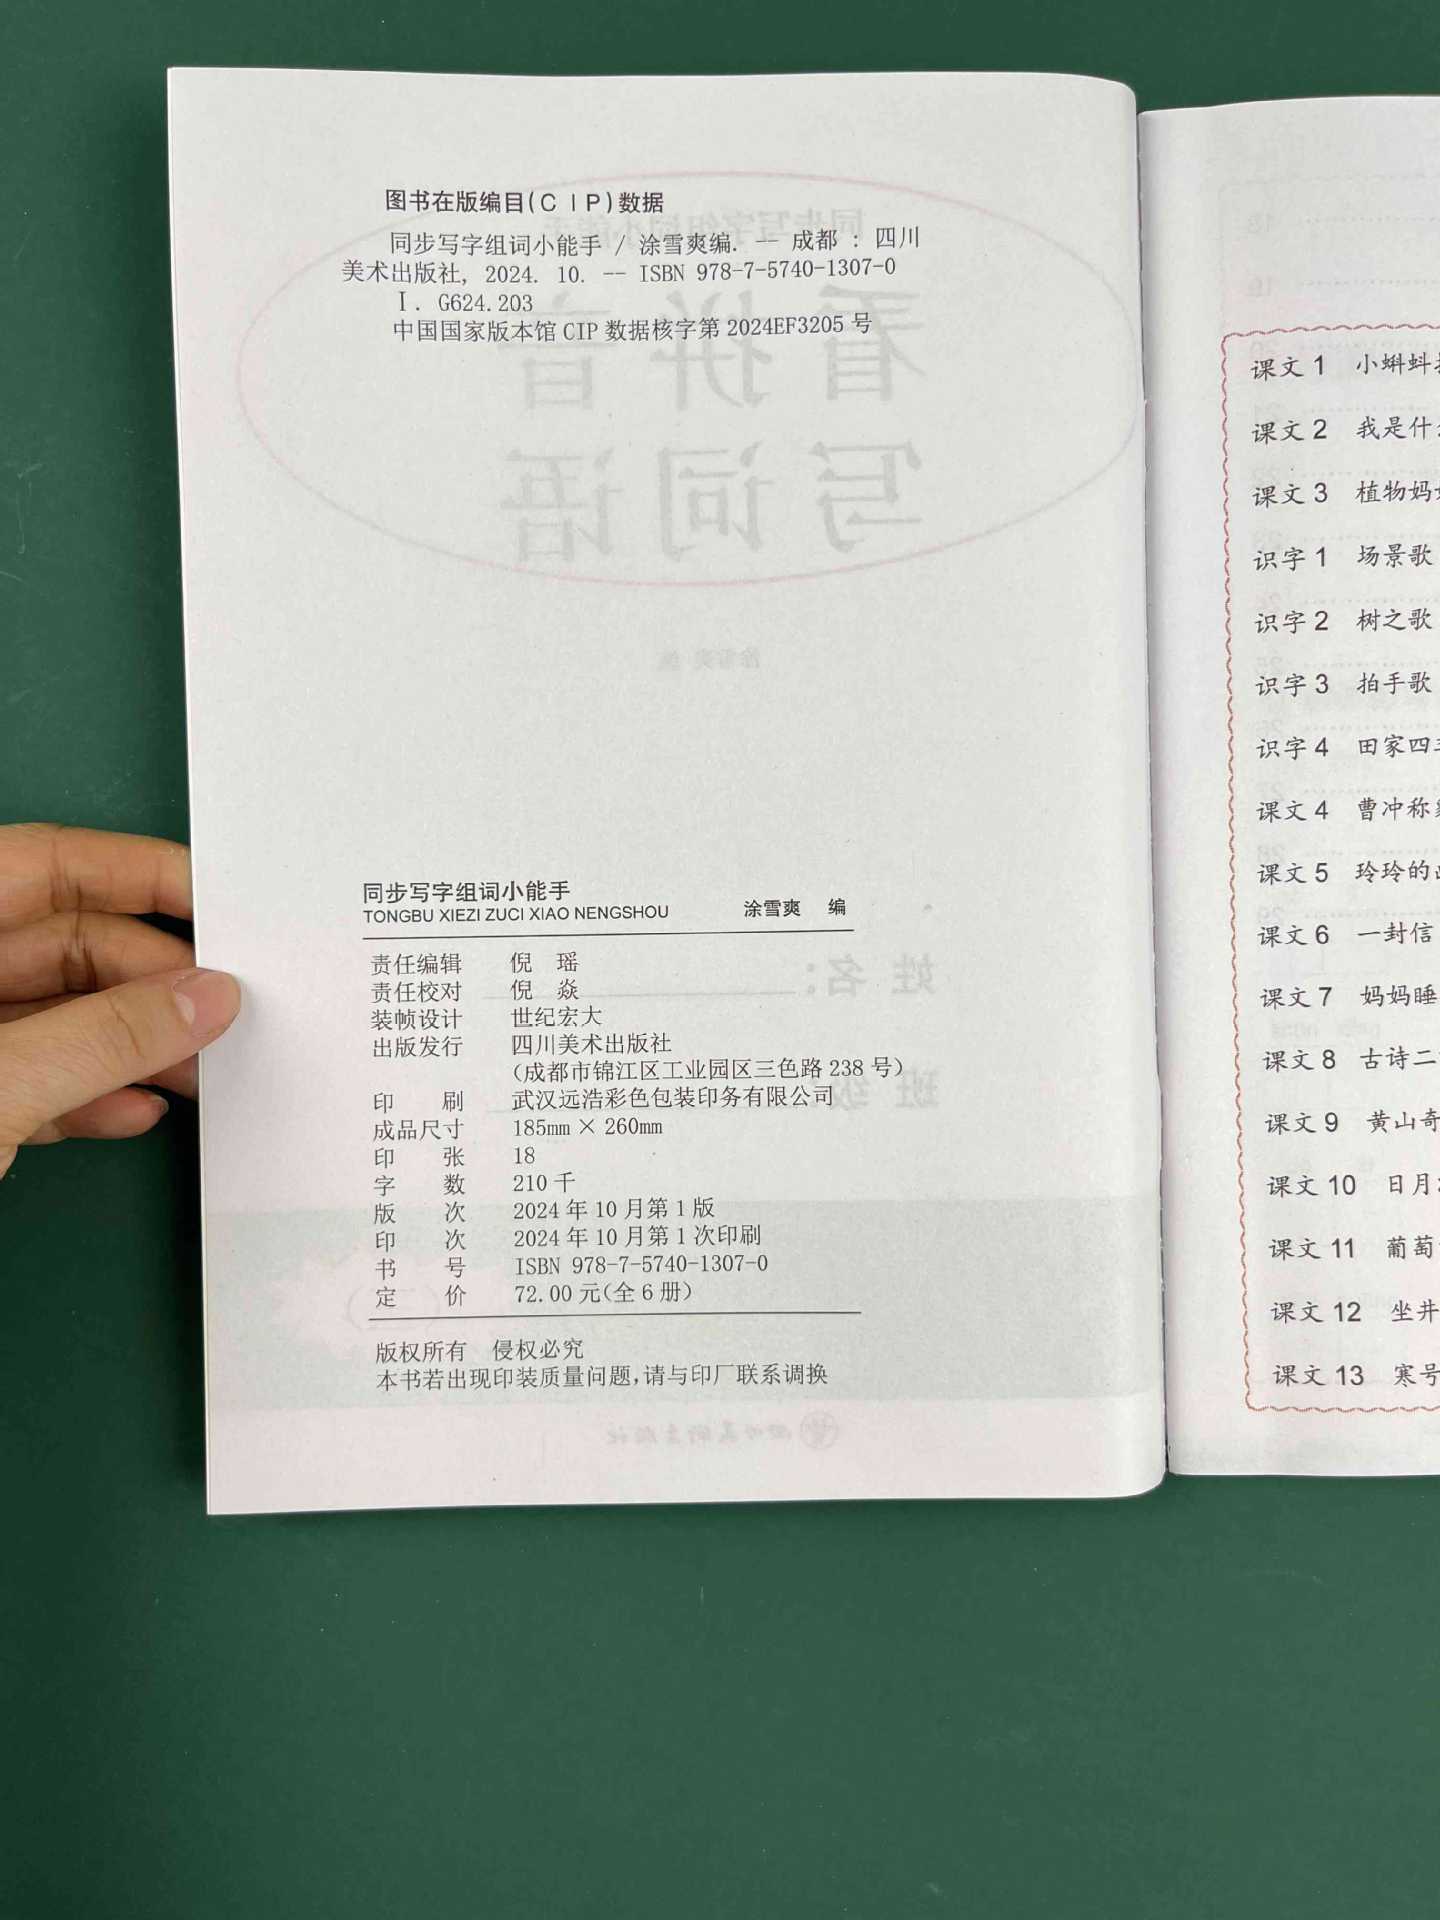 图书在版编目(CIP)数据
同步写字组词小能手 / 涂雪爽编. -- 成都 : 四川
美术出版社, 2024. 10. -- ISBN 978-7-5740-1307-0
Ⅰ. G624.203
中国国家版本馆 CIP 数据核字第 2024EF3205 号
同步写字组词小能手
TONGBU XIEZI ZUCI XIAO NENGSHOU 涂雪爽 编
责任编辑 倪 瑶
责任校对 倪 焱
装帧设计 世纪宏大
出版发行 四川美术出版社
(成都市锦江区工业园区三色路 238 号)
印 刷 武汉远浩彩色包装印务有限公司
成品尺寸 185mm × 260mm
印 张 18
字 数 210 千
版 次 2024 年 10 月第 1 版
印 次 2024 年 10 月第 1 次印刷
书 号 ISBN 978-7-5740-1307-0
定 价 72.00 元(全 6 册)
版权所有 侵权必究
本书若出现印装质量问题,请与印厂联系调换
课文 1 小蝌蚪
课文 2 我是什
课文 3 植物妈
识字 1 场景歌
识字 2 树之歌
识字 3 拍手歌
识字 4 田家四
课文 4 曹冲称
课文 5 玲玲的
课文 6 一封信
课文 7 妈妈睡
课文 8 古诗二
课文 9 黄山奇
课文 10 日月
课文 11 葡萄
课文 12 坐井
课文 13 寒号